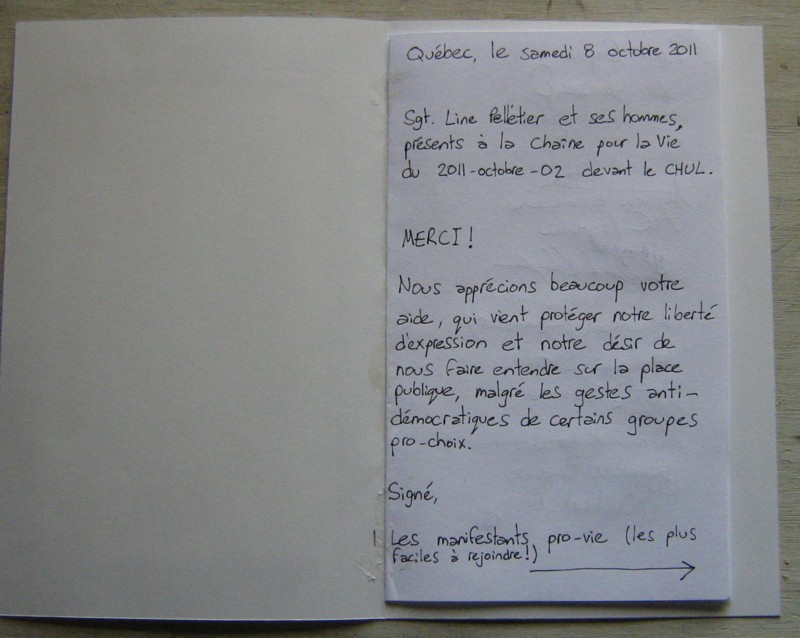 Québec, le samedi 8 octobre 2011
Sgt. Line Pellétier et ses hommes,
présents à la Chaîne pour la Vie
du 2011-octobre-02 devant le CHUL.
MERCI!
Nous apprécions beaucoup votre
aide, qui vient protéger notre liberté
d'expression et notre désir de
nous faire entendre sur la place
publique, malgré les gestes anti-
démocratiques de certains groupes
pro-choix.
Signé,
Les manifestants pro-vie (les plus
faciles à rejoindre!)